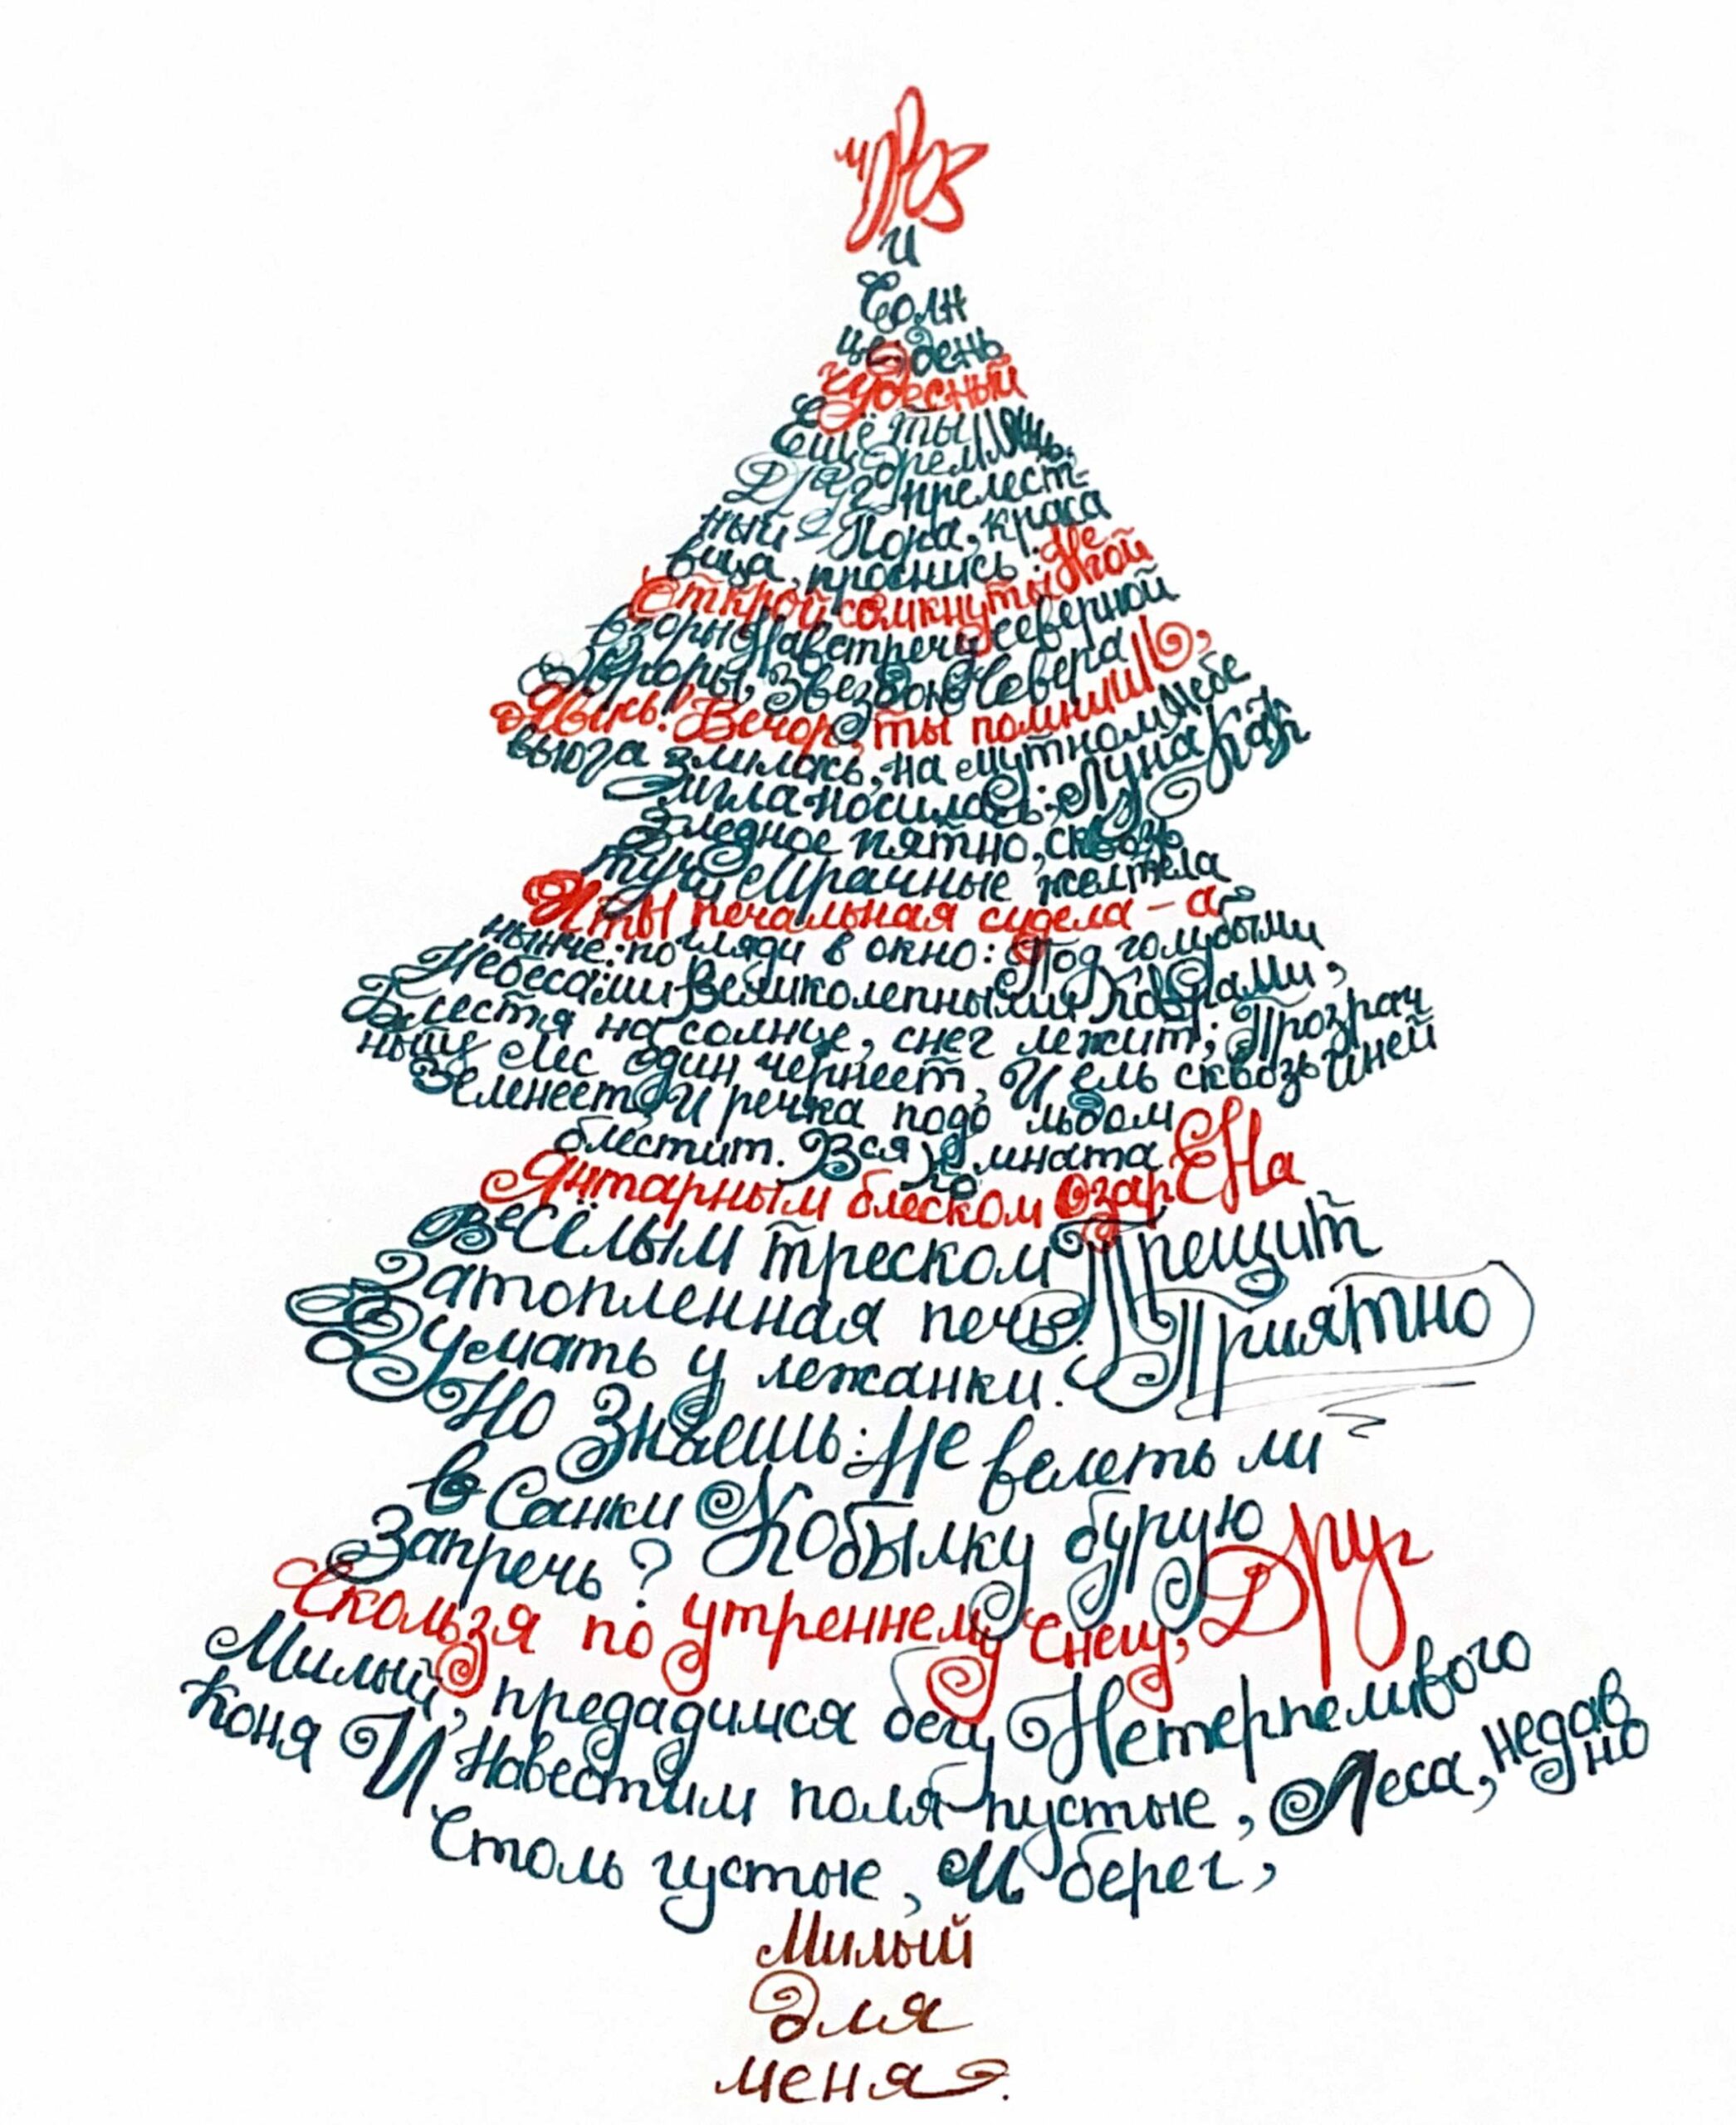 Мороз
и
Солн
це; день
чудесный
Ещё ты
дремлешь,
Друг прелест-
ный - Пора, краса
вица, проснись:
Открой сомкнуты Негой
взоры Навстречу северной
Авроры, Звездою Севера
Явись! Вечор, ты помнишь,
вьюга злилась, на мутном небе
Мгла носилась; Луна, как
Бледное пятно, сквозь
тучи Мрачные желтела
И ты печальная сидела - а
нынче: погляди в окно: Под голубыми
Небесами Великолепными Коврами,
Блестя на солнце, снег лежит; Прозрач
ный Лес один чернеет, И ель сквозь иней
Зеленеет, И речка подо льдом
блестит. Вся комната
Янтарным блеском ОзарЕНа
Весёлым треском Трещит
Затопленная печь. Приятно
Думать у лежанки.
Но Знаешь: Не велеть ли
в Санки Кобылку бурую
Запречь?
Скользя по утреннему Снегу, Друг
Милый, предадимся бегу Нетерпеливого
Коня И Навестим поля пустые, Леса, недав
но
Столь густые, И берег,
Милый
для
меня.